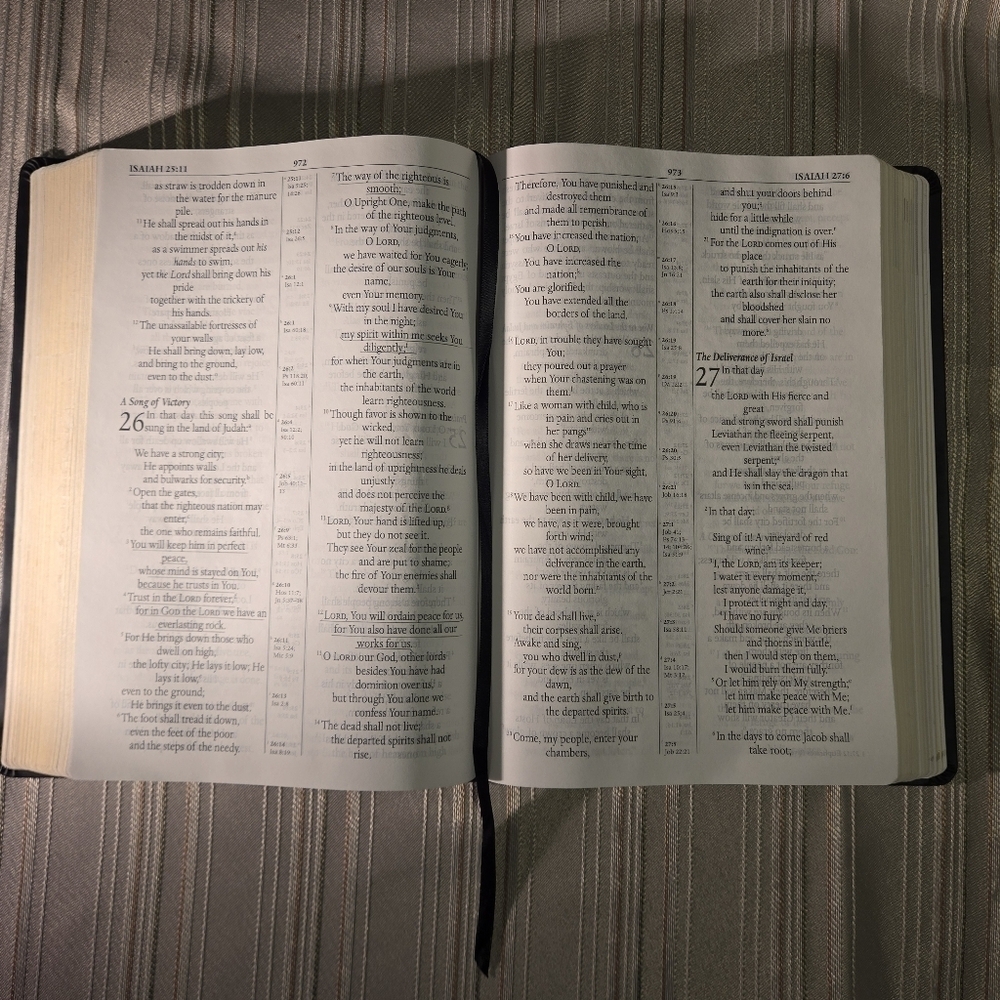 ISAIAH 25:11
972
as straw is trodden down in
the water for the manure
pile.
11 He shall spread out his hands in
the midst of it,
as a swimmer spreads out his
hands to swim,
yet the Lord shall bring down his
pride
together with the trickery of
his hands.
12 The unassailable fortresses of
your walls
He shall bring down, lay low,
and bring to the ground,
even to the dust.
A Song of Victory
26 In that day this song shall be
sung in the land of Judah:
We have a strong city;
He appoints walls
and bulwarks for security.
2 Open the gates,
that the righteous nation may
enter,
the one who remains faithful.
3 You will keep him in perfect
peace,
whose mind is stayed on You,
because he trusts in You.
4 Trust in the LORD forever,
for in GOD the LORD we have an
everlasting rock.
5 For He brings down those who
dwell on high,
the lofty city; He lays it low; He
lays it low,
even to the ground;
He brings it even to the dust.
6 The foot shall tread it down,
even the feet of the poor
and the steps of the needy.
7 The way of the righteous is
smooth;
O Upright One, make the path
of the righteous level.
8 In the way of Your judgments,
O LORD,
we have waited for You eagerly;
the desire of our souls is Your
name,
even Your memory.
9 With my soul I have desired You
in the night;
my spirit within me seeks You
diligently;
for when Your judgments are in
the earth,
the inhabitants of the world
learn righteousness.
10 Though favor is shown to the
wicked,
yet he will not learn
righteousness;
in the land of uprightness he deals
unjustly
and does not perceive the
majesty of the LORD.
11 LORD, Your hand is lifted up,
but they do not see it.
They see Your zeal for the people
and are put to shame;
the fire of Your enemies shall
devour them.
12 LORD, You will ordain peace for us,
for You also have done all our
works for us.
13 O LORD our God, other lords
besides You have had
dominion over us,
but through You alone we
confess Your name.
14 The dead shall not live;
the departed spirits shall not
rise.
973
ISAIAH 27:6
Therefore, You have punished and
destroyed them
and made all remembrance of
them to perish.
15 You have increased the nation,
O LORD,
You have increased the
nation;
You are glorified;
You have extended all the
borders of the land.
16 LORD, in trouble they have sought
You;
they poured out a prayer
when Your chastening was on
them.
17 Like a woman with child, who is
in pain and cries out in
her pangs
when she draws near the time
of her delivery,
so have we been in Your sight,
O LORD.
18 We have been with child, we have
been in pain,
we have, as it were, brought
forth wind;
we have not accomplished any
deliverance in the earth,
nor were the inhabitants of the
world born.
19 Your dead shall live,
their corpses shall arise.
Awake and sing,
you who dwell in dust,
for your dew is as the dew of the
dawn,
and the earth shall give birth to
the departed spirits.
20 Come, my people, enter your
chambers,
and shut your doors behind
you;
hide for a little while
until the indignation is over.
21 For the LORD comes out of His
place
to punish the inhabitants of the
earth for their iniquity;
the earth also shall disclose her
bloodshed
and shall cover her slain no
more.
The Deliverance of Israel
27 In that day
the LORD with His fierce and
great
and strong sword shall punish
Leviathan the fleeing serpent,
even Leviathan the twisted
serpent;
and He shall slay the dragon that
is in the sea.
2 In that day:
Sing of it! A vineyard of red
wine.
3 I, the LORD, am its keeper;
I water it every moment;
lest anyone damage it,
I protect it night and day.
4 I have no fury.
Should someone give Me briers
and thorns in battle,
then I would step on them,
I would burn them fully.
5 Or let him rely on My strength,
let him make peace with Me;
let him make peace with Me.
6 In the days to come Jacob shall
take root;